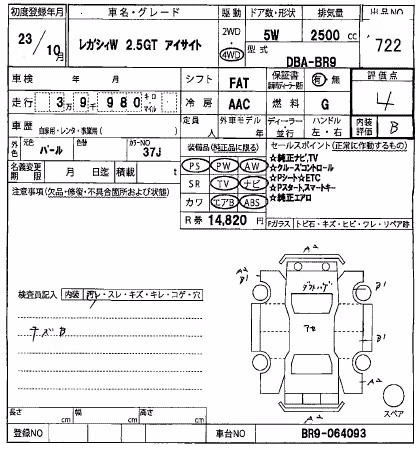 初度登録年月 車名・グレード 駆動 ドア数・形状 排気量 出品NO
23/10月 レガシィW 2.5GT アイサイト 2WD 4WD 5W 2500 cc 722
型式 DBA-BR9
車検 年 月 シフト FAT 保証書 有 無 評価点
走行 3万9千980 キロ・マイル 冷房 AAC 燃料 G 4
車歴 自家用・レンタ・事業用( ) 定員 人 外車モデル 年 ディーラー・並行 ハンドル 左・右 内装評価 B
外色 元色 パール 色替 カラーNO 37J 装備品(純正品に限る) セールスポイント(正常に作動するもの)
名義変更期限 月 日迄 積載 t PS PW AW ☆純正ナビ,TV
☆クルーズコントロール
注意事項(欠品・修復・不具合箇所および状態) SR TV ナビ ☆Pシート☆ETC
☆Pスタート,スマートキー
カワ エアB ABS ☆純正エアロ
R券 14,820 円 Fガラス トビ石・キズ・ヒビ・ワレ・リペア跡
A2
A2
B1
検査員記入 内装 汚レ・スレ・キズ・キレ・コゲ・穴 B1
B1
A2
A2
スペア
長さ cm 幅 cm 高さ cm
登録NO 車台NO BR9-064093